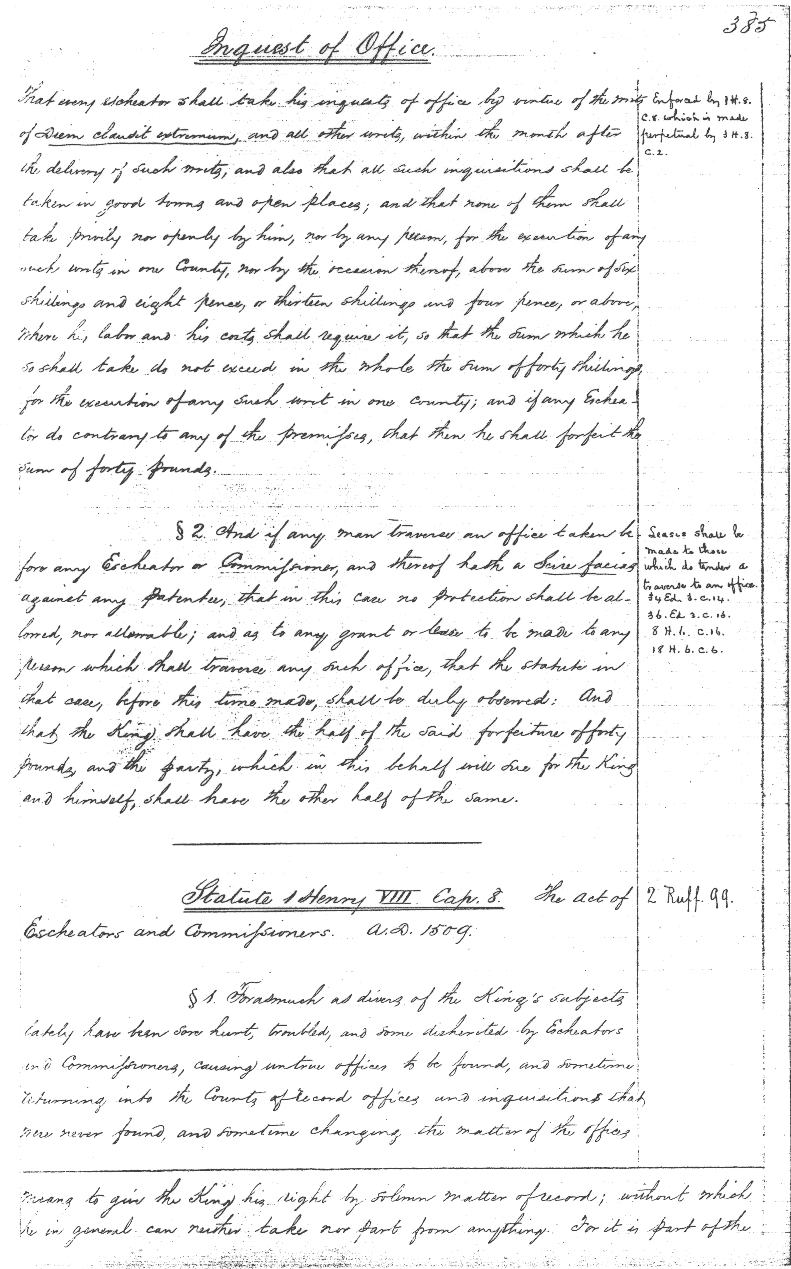 385
Inquest of Office.
That every escheator shall take his inquests of office by virtue of the writs
of Diem clausit extremum, and all other writs, within the month after
the delivery of such writs; and also that all such inquisitions shall be
taken in good towns and open places; and that none of them shall
take privily nor openly by him, nor by any person, for the execution of any
such writs in one County, nor by the occasion thereof, above the sum of six
shillings and eight pence, or thirteen shillings and four pence, or above,
where his labor and his costs shall require it, so that the sum which he
so shall take do not exceed in the whole the sum of forty shillings
for the execution of any such writ in one county; and if any Eschea-
tor do contrary to any of the premisses, that then he shall forfeit the
sum of forty pounds.
Enforced by 1 H. 8.
C. 8. which is made
perpetual by 3 H. 8.
C. 2.
§ 2. And if any man traverse an office taken be-
fore any Escheator or Commissioner, and thereof hath a Scire facias
against any Patentee, that in this case no protection shall be al-
lowed, nor allowable; and as to any grant or lease to be made to any
person which shall traverse any such office, that the statute in
that case, before this time made, shall be duly observed: And
that the King shall have the half of the said forfeiture of forty
pounds, and the party, which in this behalf will sue for the King
and himself, shall have the other half of the same.
Leases shall be
made to those
which do tender a
traverse to an office.
34 Ed. 3. C. 14.
36. Ed. 3. C. 13.
8 H. 6. C. 16.
18 H. 6. C. 6.
Statute 1 Henry VIII. Cap. 8. The act of
Escheators and Commissioners. A.D. 1509.
2 Ruff. 99.
§ 1. Forasmuch as divers of the King's subjects
lately have been sore hurt, troubled, and some disherited by Escheators
and Commissioners, causing untrue offices to be found, and sometime
returning into the Courts of record offices and inquisitions that
were never found, and sometime changing the matter of the offices
means to give the King his right by solemn matter of record; without which
he in general can neither take nor part from anything. For it is part of the